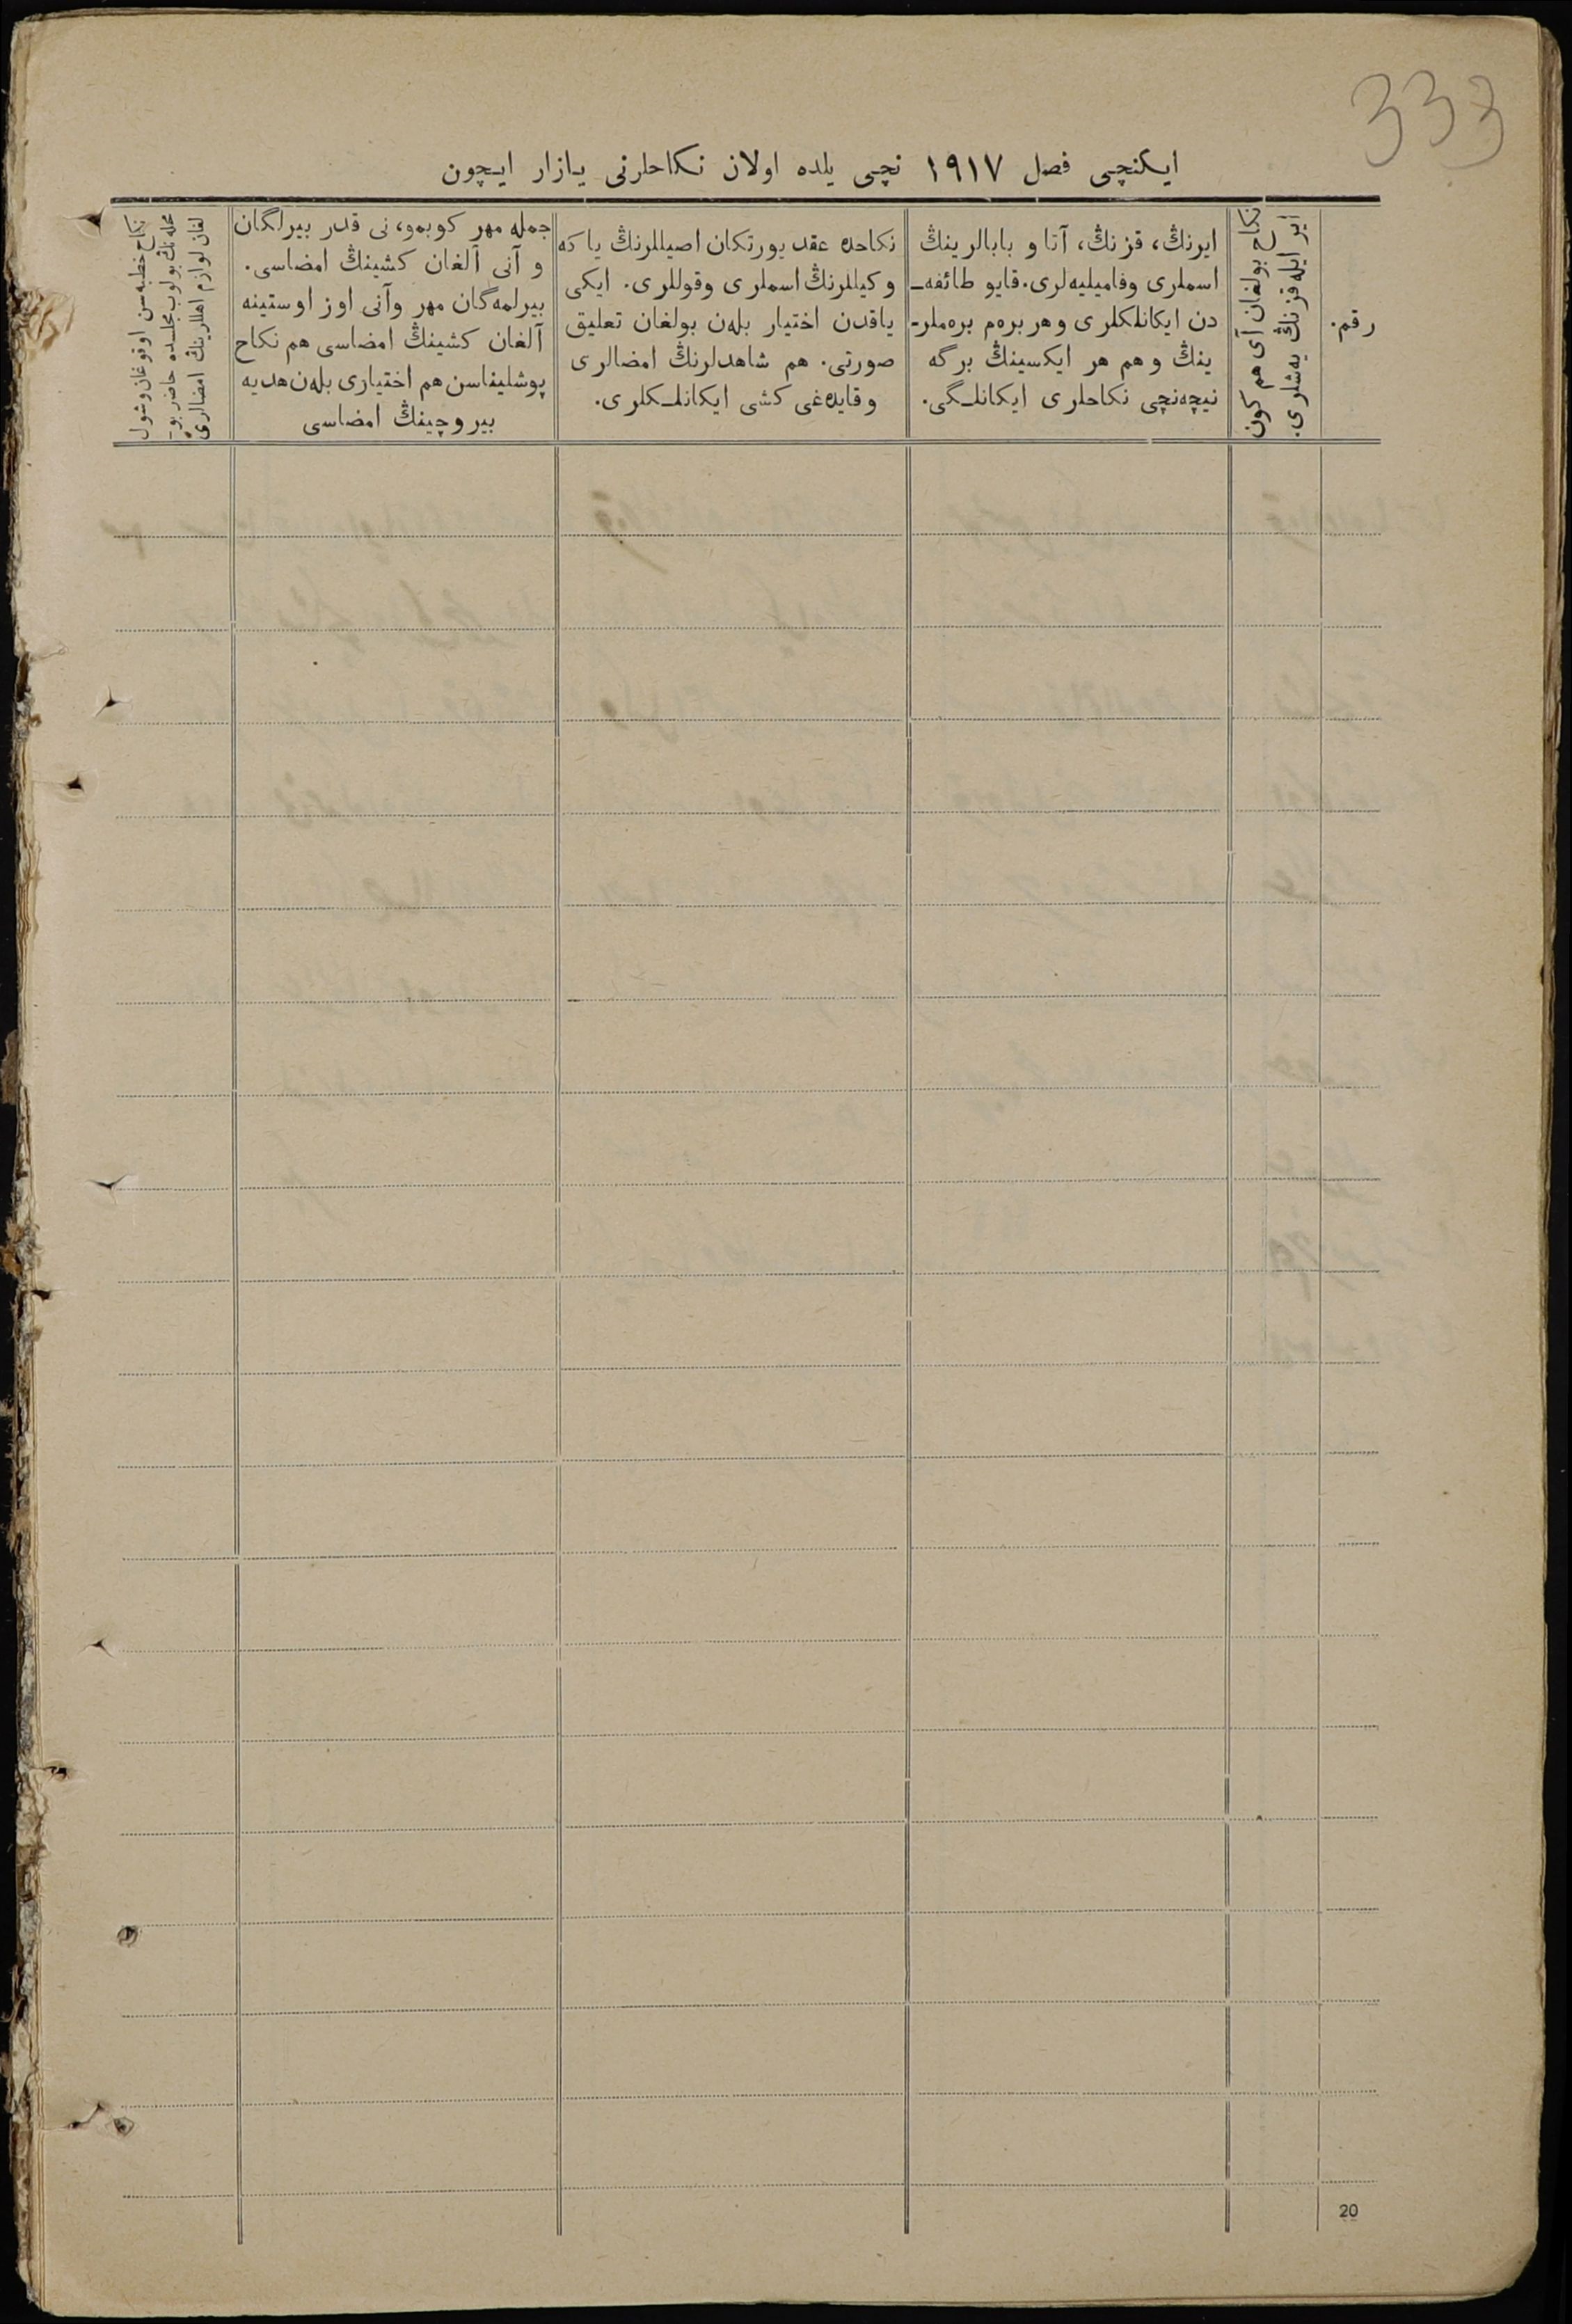 333
ایکنچی فصل ۱۹۱۷ نچی یلده اولان نکاحلرنی یازار ایچون
رقم.
ایر ایله قزنڭ یه‌شلری.
نکاح بولغان آی هم کون
ایرنڭ، قزنڭ، آتا و بابالرینڭ
اسملری وفامیلیه‌لری. قایو طائفه‌ـ
دن ایکانلکلری و هر بره‌م بره‌ملرـ
ینڭ و هم هر ایکسینڭ برگه
نیچه‌نچی نکاحلری ایکانلـگی.
نکاحده عقد یورتکان اصیللرنڭ یا که
وکیللرنڭ اسملری وقوللری. ایکی
یاقدن اختیار بله‌ن بولغان تعلیق
صورتی. هم شاهدلرنڭ امضالری
وقایده‌غی کشی ایکانلـکلری.
جمله مهر کوبمو، نی قدر بیرلگان
و آنی آلغان کشینڭ امضاسی.
بیرلمه‌گان مهر وآنی اوز اوستینه
آلغان کشینڭ امضاسی هم نکاح
پوشلیناسن هم اختیاری بله‌ن هدیه
بیروچینڭ امضاسی
نکاح خطبه‌سن اوقوغان وشول
محله‌نڭ بولوب مجلسده حاضر بوـ
لغان لوازم اهللرینڭ امضالری
20